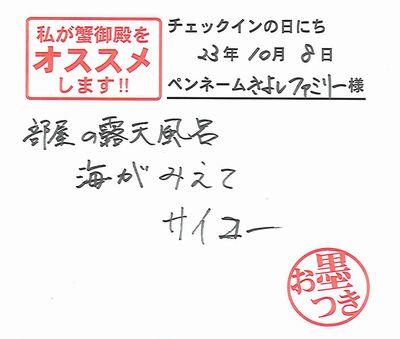 私が蟹御殿を
オススメ
します!!
チェックインの日にち
23年10月8日
ペンネームきよしファミリー様
部屋の露天風呂
海がみえて
サイコー
お墨
つき